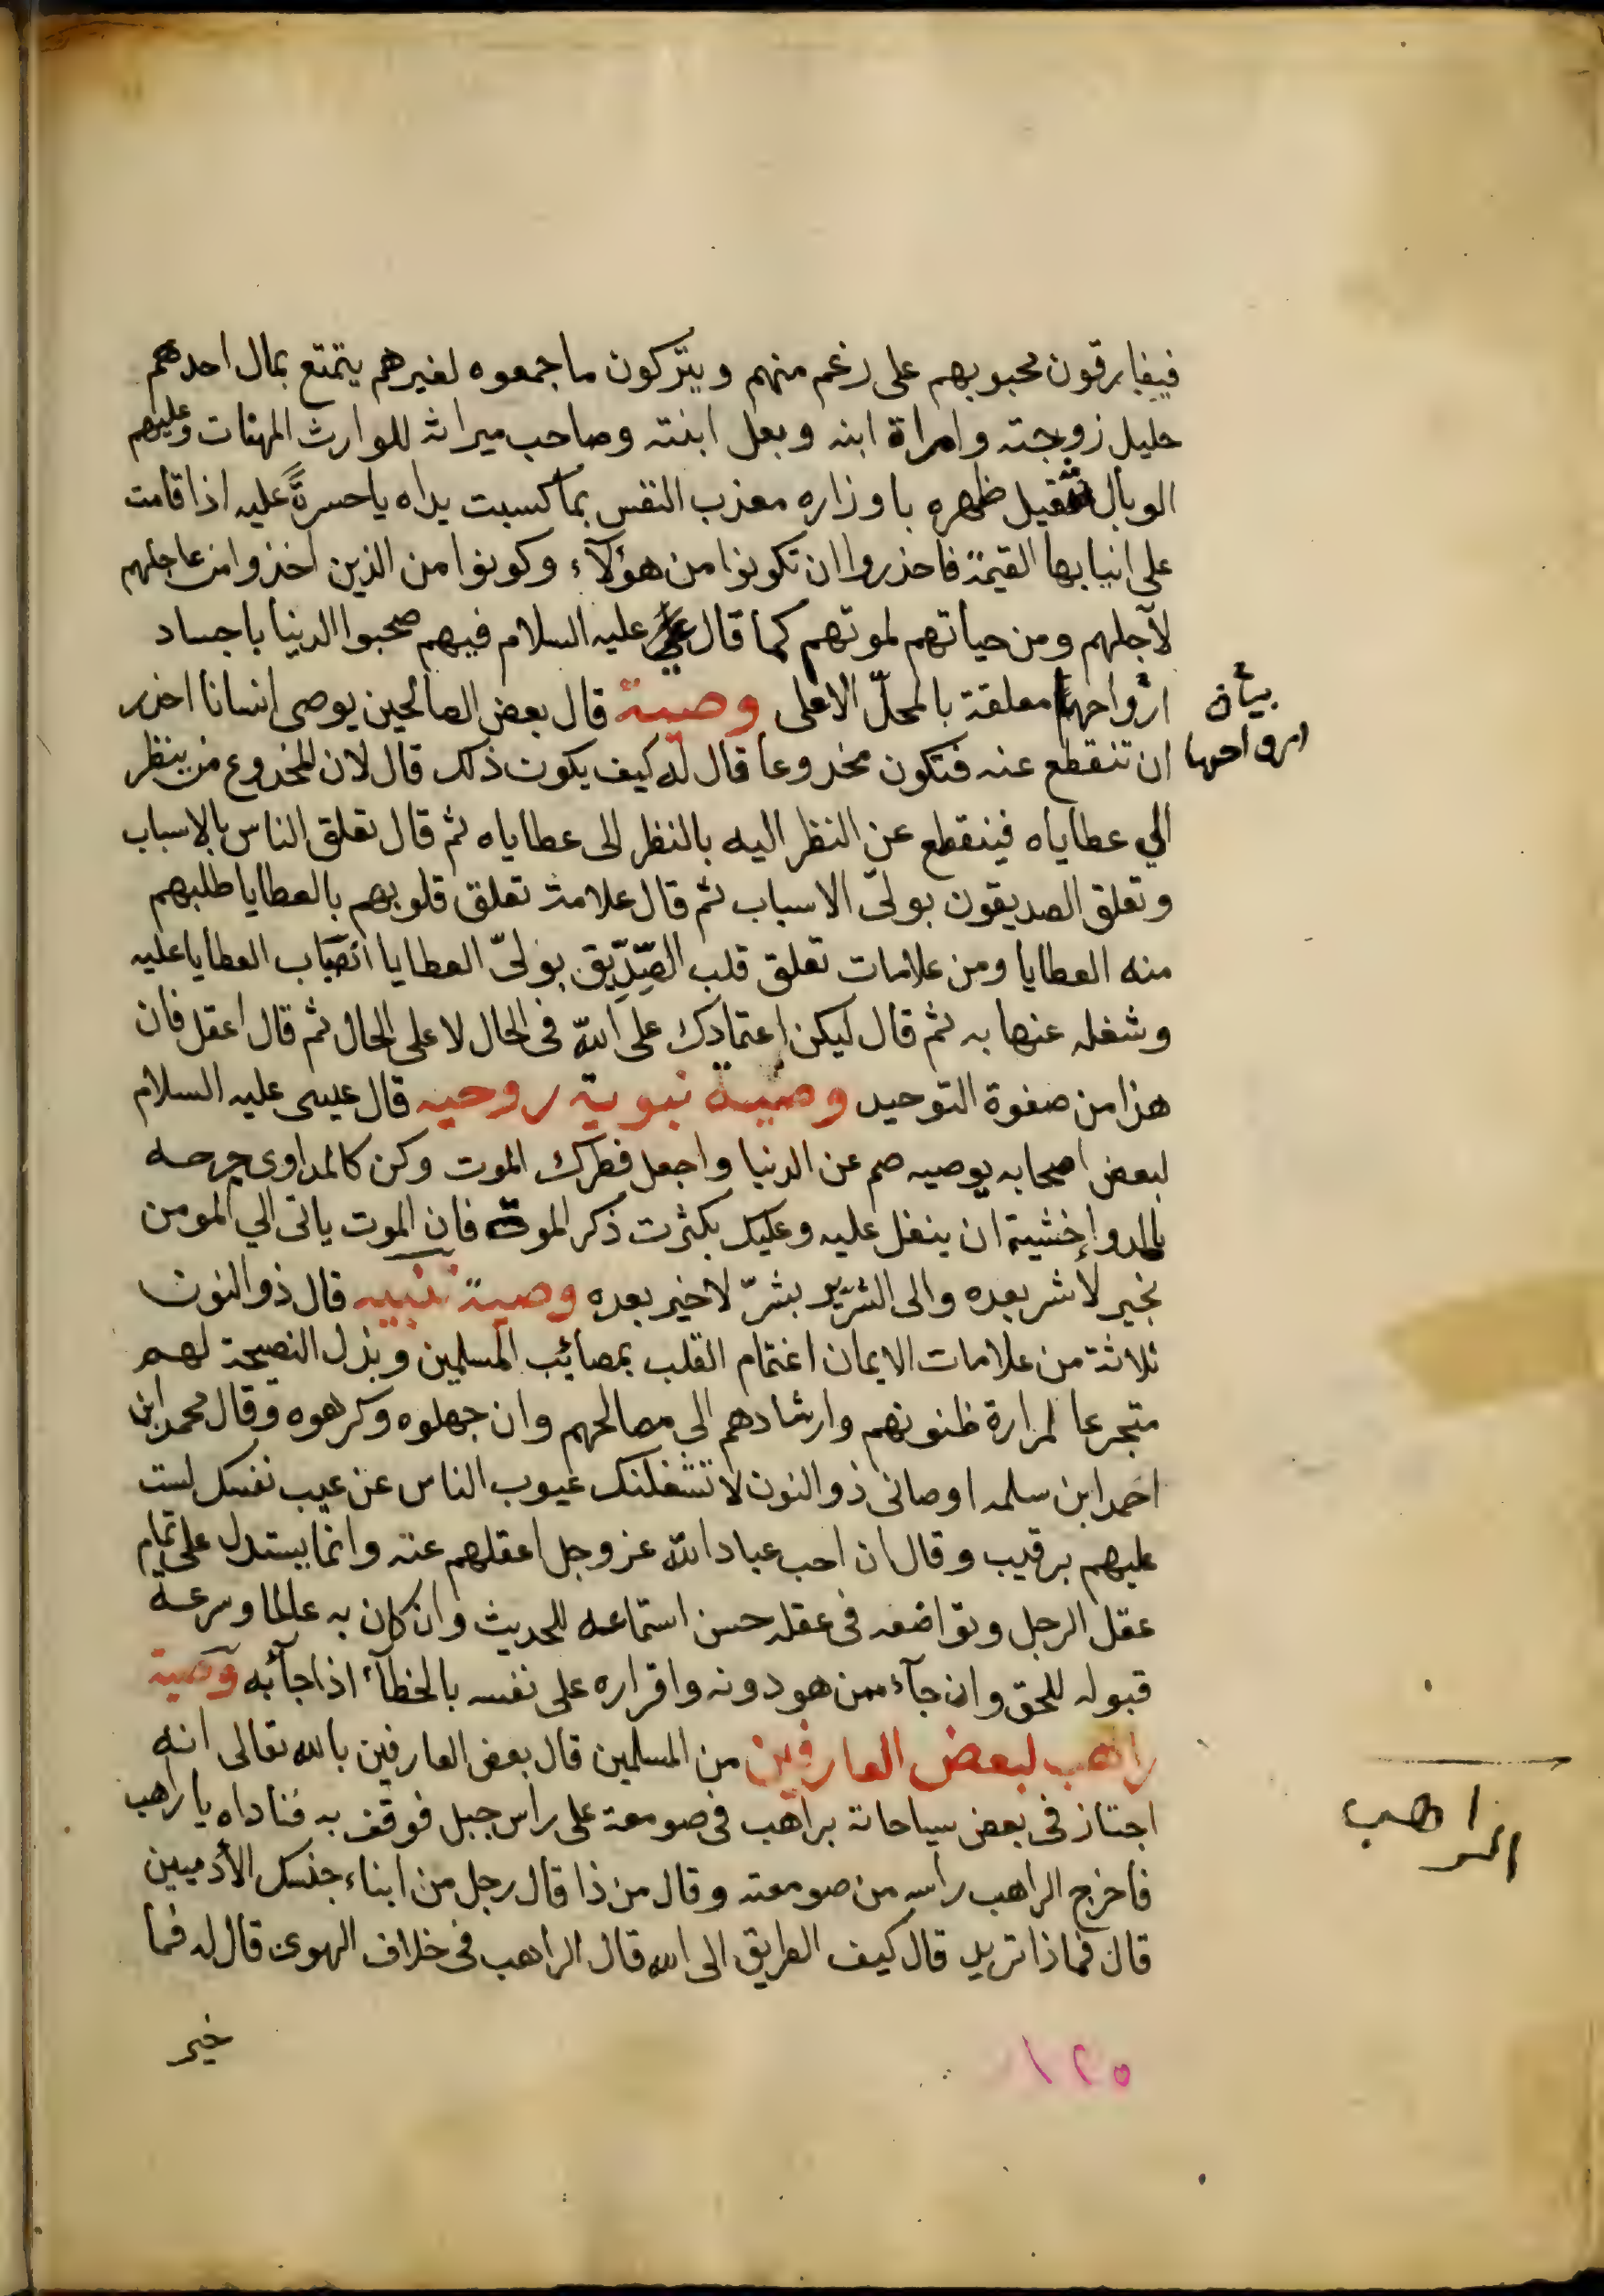 فيفارقون محبوبهم على رغم منهم ويتركون ما جمعوه لغيرهم يتمتع بمال احدهم
حليل زوجته وامراة ابنه وبعل ابنته وصاحب ميراثه للوارث المهنات وعليهم
الوبال ثقيل ظهره باوزاره معذب النفس بما كسبت يداه يا حسرةً عليه اذا قامت
على ابنابها القيمة فاحذروا ان تكونوا من هؤلآء وكونوا من الذين اخذوا من عاجلهم
لآجلهم ومن حياتهم لموتهم كما قال علي عليه السلام فيهم صحبوا الدنيا باجساد
ارواحها معلقة بالمحلّ الاعلى وصية قال بعض الصالحين يوصى انسانا احذر
بيان
ارواحها
ان تنقطع عنه فتكون مخدوعا قال له كيف يكون ذلك قال لان المخدوع من ينظر
الي عطاياه فينقطع عن النظر اليه بالنظر الى عطاياه ثم قال تعلق الناس بالاسباب
وتعلق الصديقون بولىّ الاسباب ثم قال علامة تعلق قلوبهم بالعطايا طلبهم
منه العطايا ومن علامات تعلق قلب الصِّدِّيق بولىّ العطايا انصباب العطايا عليه
وشغله عنها به ثم قال ليكن اعتمادك على الله فى الحال لا على الحال ثم قال اعقل فان
هذا من صفوة التوحيد وصية نبوية روحيه قال عيسى عليه السلام
لبعض اصحابه يوصيه صم عن الدنيا واجعل فطرك الموت وكن كالمداوى جرحه
بالدواء خشية ان ينغل عليه وعليك بكثرت ذكر الموت فان الموت ياتى الي المومن
بخير لا شر بعده والى الشرير بشرّ لا خير بعده وصية تنبيه قال ذو النون
ثلاثة من علامات الايمان اغتمام القلب بمصائب المسلمين وبذل النصيحة لهم
متجرعا لمرارة ظنونهم وارشادهم الى مصالحهم وان جهلوه وكرهوه وقال محمد ابن
احمد ابن سلمه اوصانى ذو النون لا تشغلنك عيوب الناس عن عيب نفسك لست
عليهم برقيب وقال ان احب عباد الله عز وجل اعقلهم عنه وانما يستدل على تمام
عقل الرجل وتواضعه فى عقله حسن استماعه للحديث وان كان به عالما وسرعة
قبوله للحق وان جآء ممن هو دونه واقراره على نفسه بالخطآء اذا جآء به وصية
راهب لبعض العارفين من المسلمين قال بعض العارفين بالله تعالى انه
اجتاز فى بعض سياحاته براهب فى صومعة على راس جبل فوقف به فناداه يا راهب
الراهب
فاخرج الراهب راسه من صومعته وقال من ذا قال رجل من ابناء جنسك الأدميين
قال فماذا تريد قال كيف الطريق الى الله قال الراهب فى خلاف الهوى قال له فما
خير
١٢٥